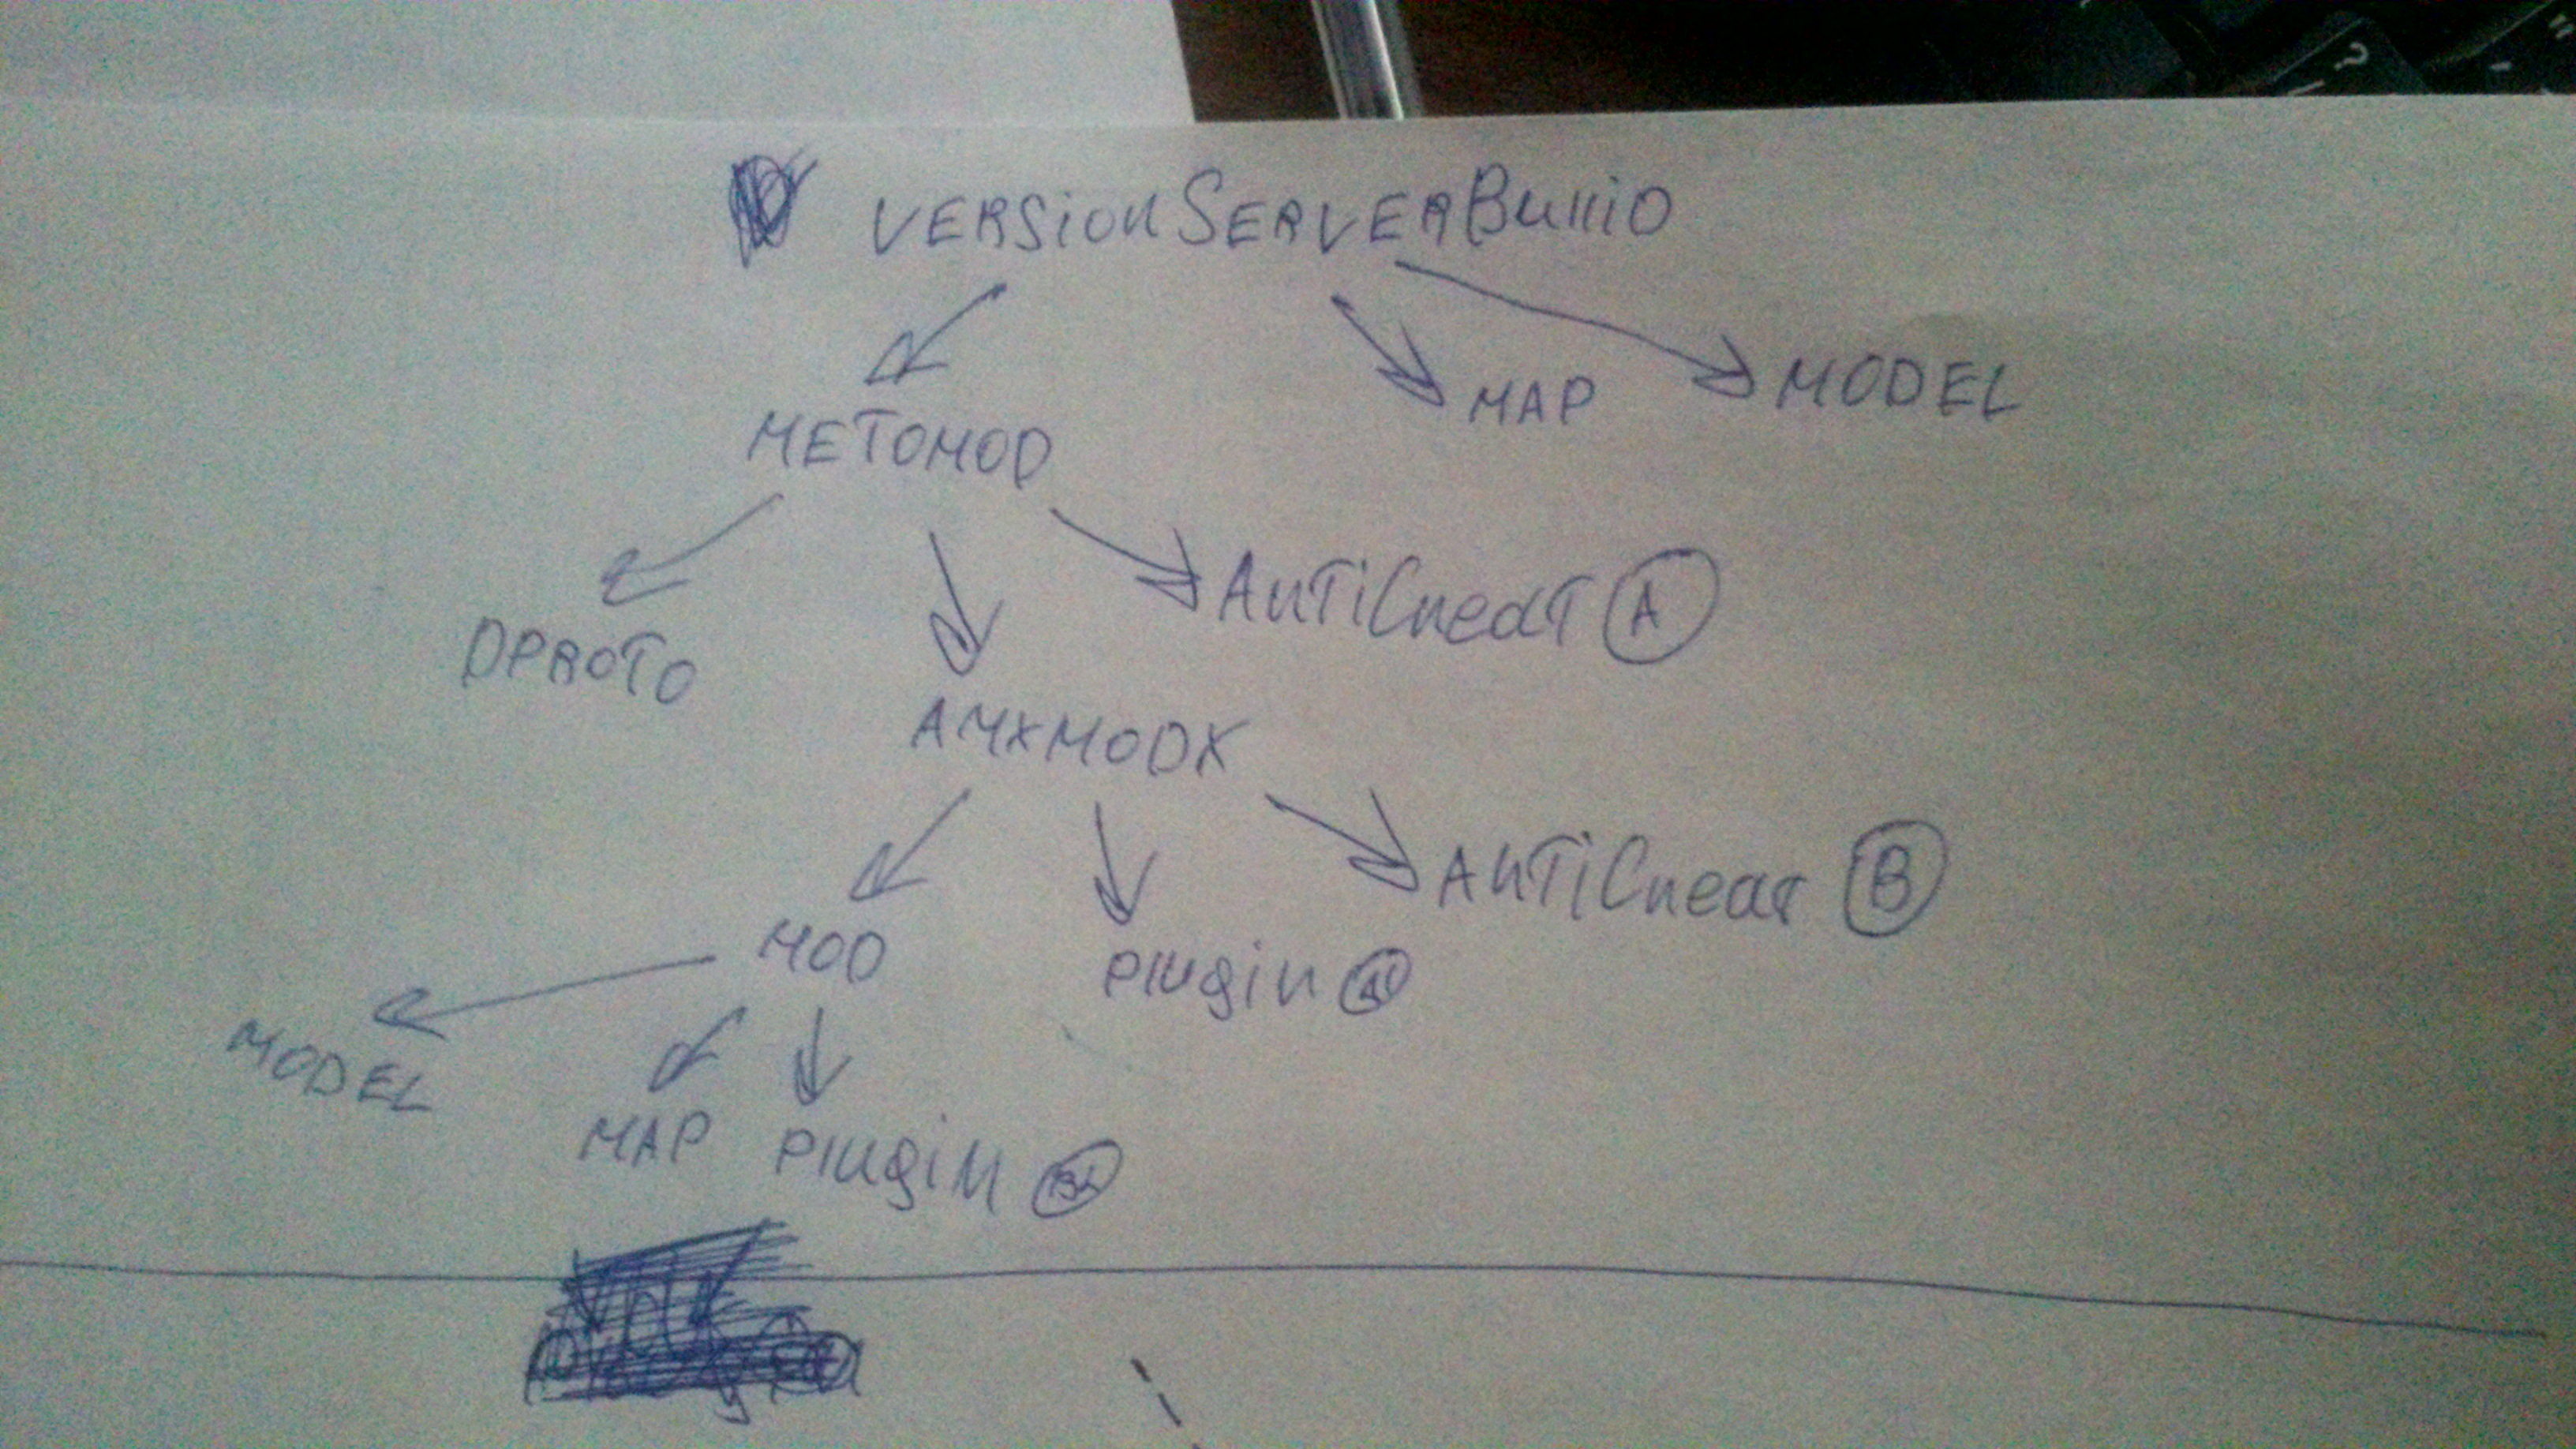 VERSION SERVER
MAP MODEL
METOMOD
AnTiCheaT A
DPROTO
AMXMODX
AnTiCheat B
MOD
Plugin
MODEL
MAP Plugin
?